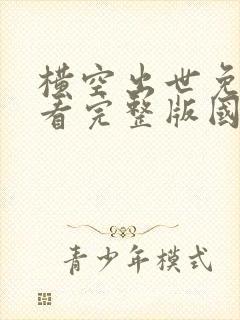 橫空出世免
看完整版國
青少年模式